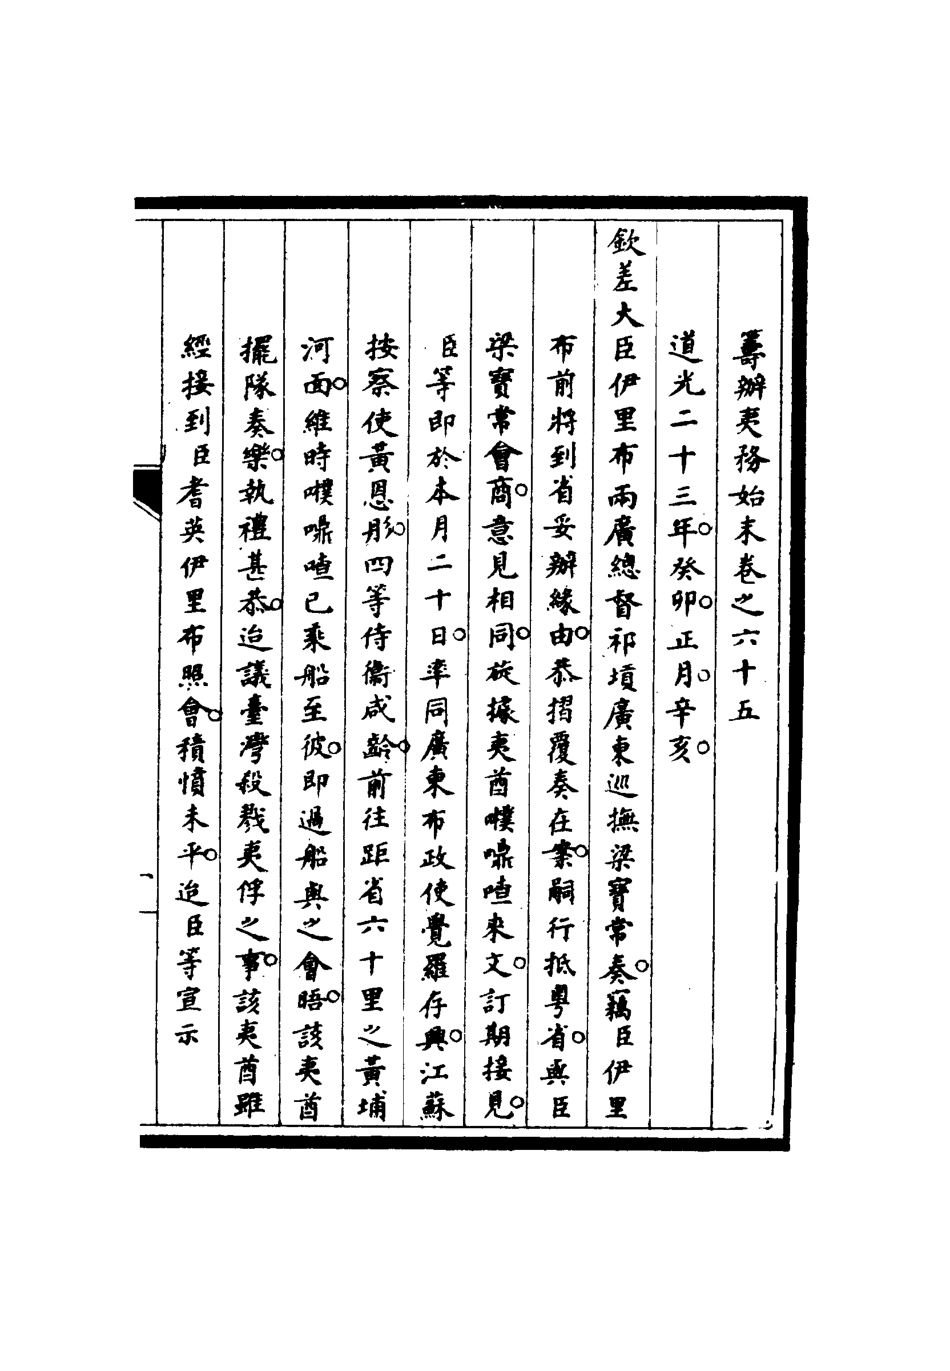 籌辦夷務始末卷之六十五
道光二十三年。癸卯。正月。辛亥。
欽差大臣伊里布兩廣總督祁墳廣東巡撫梁寶常奏。竊臣伊里
布前將到省妥辦緣由。恭摺覆奏在案。嗣行抵粵省。與臣
梁寶常會商。意見相同。旋據夷酋噗嚊喳來文。訂期接見。
臣等即於本月二十日。率同廣東布政使覺羅存興。江蘇
按察使黃恩彤。四等侍衞咸齡。前往距省六十里之黃埔
河面。維時噗嚊喳已乘船至彼。即過船與之會晤。該夷酋
擺隊奏樂。執禮甚恭。迨議臺灣殺戮夷俘之事。該夷酋雖
經接到臣耆英伊里布照會。積憤未平。迨臣等宣示
一